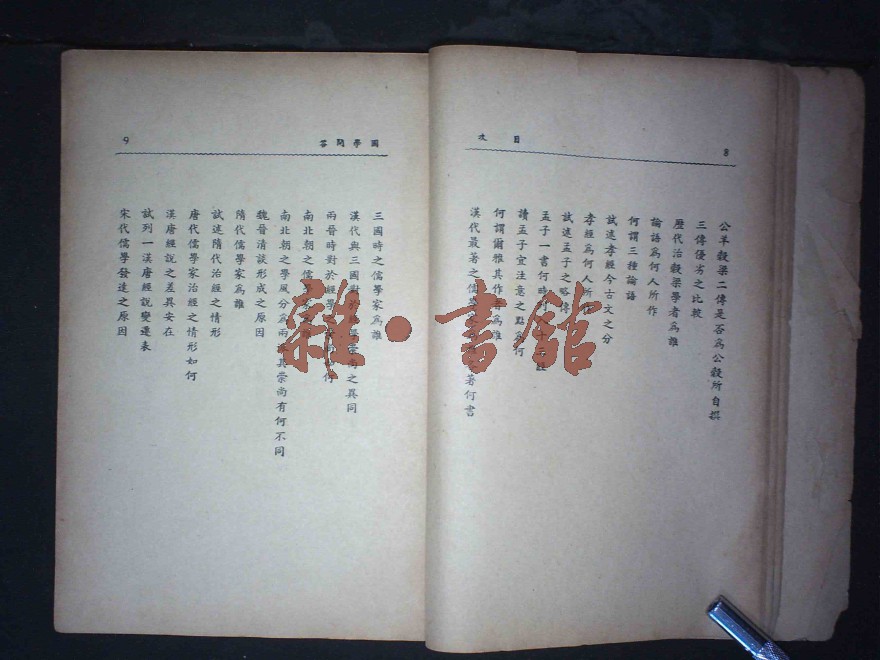 8
目次
公羊穀梁二傳是否爲公穀所自撰
三傳優劣之比較
歷代治穀梁學者爲誰
論語爲何人所作
何謂三種論語
試述孝經今古文之分
孝經爲何人所作
試述孟子之略傳
孟子一書何時
讀孟子宜注意之點爲何
何謂爾雅其作者爲誰
漢代最著之儒 著何書
國學問答
9
三國時之儒學家爲誰
漢代與三國對於經學崇尚之異同
兩晉時對於經學 何
南北朝之儒學
南北朝之學風分爲南 其崇尚有何不同
魏晉清談形成之原因
隋代儒學家爲誰
試述隋代治經之情形
唐代儒學家治經之情形如何
漢唐經說之差異安在
試列一漢唐經說變遷表
宋代儒學發達之原因
雜·書館